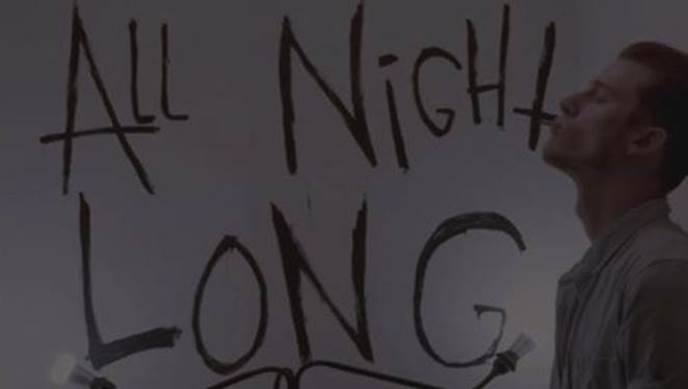 ALL NIGHt
LONG